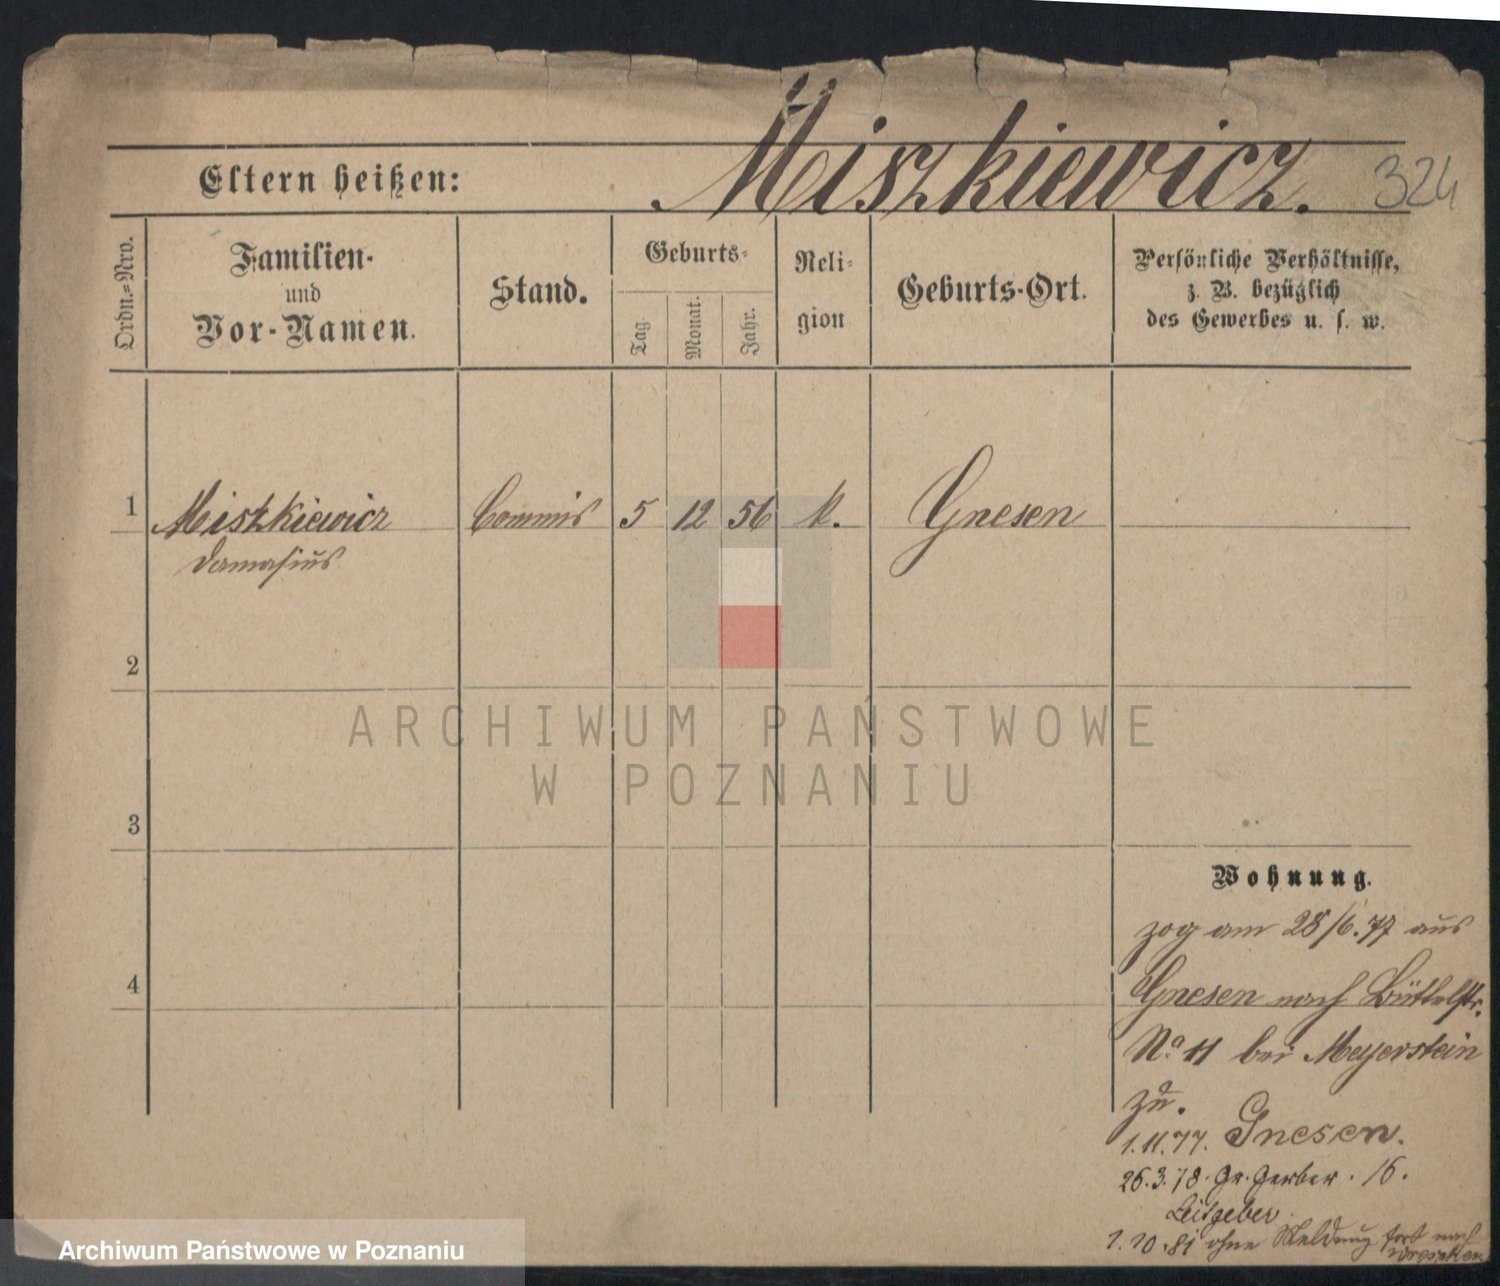 Miszkiewicz.
324
Eltern heißen:
Ordn.=Nro.
Familien-
und
Vor-Namen.
Stand.
Geburts=
Tag.
Monat.
Jahr.
Reli=
gion
Geburts-Ort.
Persönliche Verhältnisse,
z. B. bezüglich
des Gewerbes u. s. w.
1
Miszkiewicz
Damasius
Commis
5
12
56
k.
Gnesen
2
ARCHIWUM PAŃSTWOWE
W POZNANIU
3
4
Wohnung.
zog am 28/6.77 aus
Gnesen nach Büttelstr.
No 11 bei Meyerstein
zu.
1.11.77. Gnesen.
26.3.78. Gr. Gerber. 16.
Leitgeber.
1.10.81 ohne Meldung fort nach
Archiwum Państwowe w Poznaniu